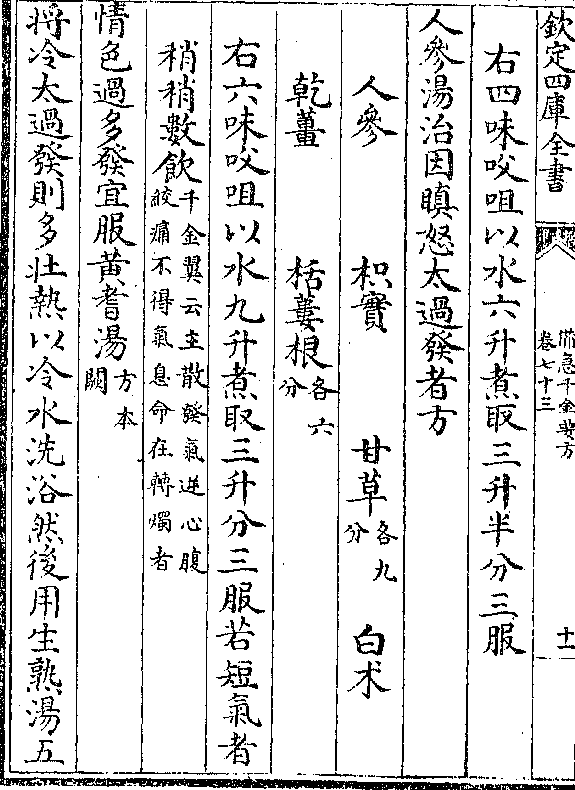 欽定四庫全書
備急千金要方
卷七十三
十一
右四味㕮咀以水六升煮取三升半分三服
人參湯治因瞋怒太過發者方
人參 枳實 甘草各九分 白朮
乾薑 栝蔞根各六分
右六味㕮咀以水九升煮取三升分三服若短氣者
稍稍數飲千金翼云主散發氣逆心腹絞痛不得氣息命在轉燭者
情色過多發宜服黃耆湯方本闕
將冷太過發則多壯熱以冷水洗浴然後用生熟湯五